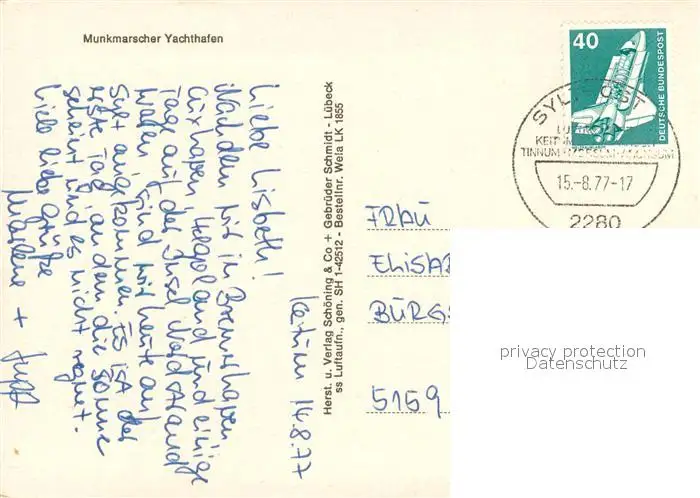 Munkmarscher Yachthafen
40
DEUTSCHE BUNDESPOST
SYLT-OST
TINNUM
15.-8.77-17
2280
Keitum 14.8.77
Liebe Lisbeth!
Nachdem wir in Bremerhaven,
Cuxhaven, Helgoland und einige
Tage auf der Insel Nordstrand
waren sind wir heute auf
Sylt angekommen. Es ist der
erste Tag, an dem die Sonne
scheint und es nicht regnet.
Viele liebe Grüße
Marlene +
Herst. u. Verlag Schöning & Co + Gebrüder Schmidt - Lübeck
ss Luftaufn., gen. SH 1-42512 - Bestellnr. Wela LK 1855
FRAU
ELISAB
BÜRGS
5159
privacy protection
Datenschutz